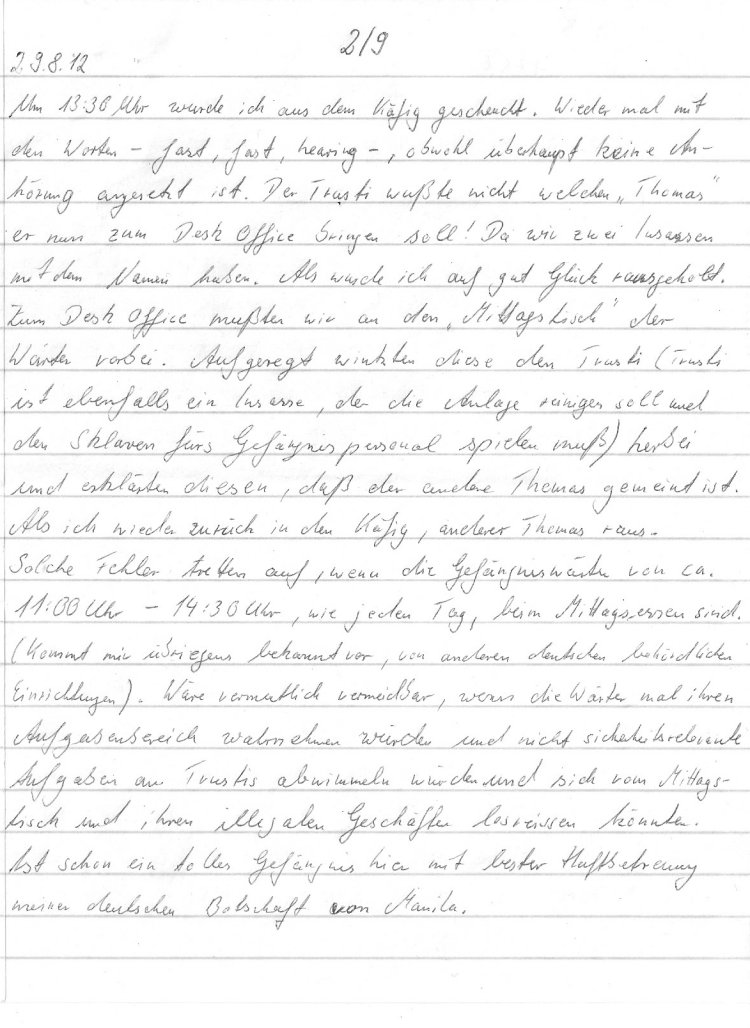 2/9
29.8.12
Um 13:30 Uhr wurde ich aus dem Käfig gescheucht. Wieder mal mit
den Worten - fast, fast, hearing -, obwohl überhaupt keine An-
hörung angesetzt ist. Der Trusti wußte nicht welchen "Thomas"
er nun zum Desk Office bringen soll! Da wir zwei Insassen
mit dem Namen haben. Also wurde ich auf gut Glück rausgeholt.
Zum Desk Office mußten wir an den "Mittagstisch" der
Wärter vorbei. Aufgeregt winkten diese den Trusti (Trusti
ist ebenfalls ein Insasse, der die Anlage reinigen soll und
den Sklaven fürs Gefängnispersonal spielen muß) herbei
und erklärten diesen, daß der andere Thomas gemeint ist.
Als ich wieder zurück in den Käfig, anderer Thomas raus.
Solche Fehler tretten auf, wenn die Gefängniswärter von ca.
11:00 Uhr - 14:30 Uhr, wie jeden Tag, beim Mittagsessen sind.
(Kommt mir übriegens bekannt vor, von anderen deutschen behördlichen
Einrichtungen). Wäre vermutlich vermeidbar, wenn die Wärter mal ihren
Aufgabenbereich wahrnehmen würden und nicht sicherheitsrelevante
Aufgaben an Trustis abwimmeln würden und sich vom Mittags-
tisch und ihren illegalen Geschäften losreissen könnten.
Ist schon ein tolles Gefängnis hier mit bester Haftbetreuung
meiner deutschen Botschaft von Manila.